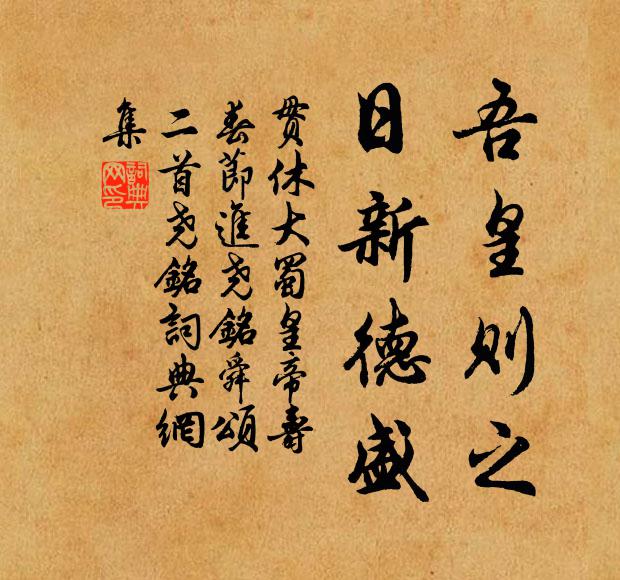 吾皇則之
日新德盛
貫休大蜀皇帝壽
春節進堯銘舜頌
二首堯銘詞典網
集
詞典
网印